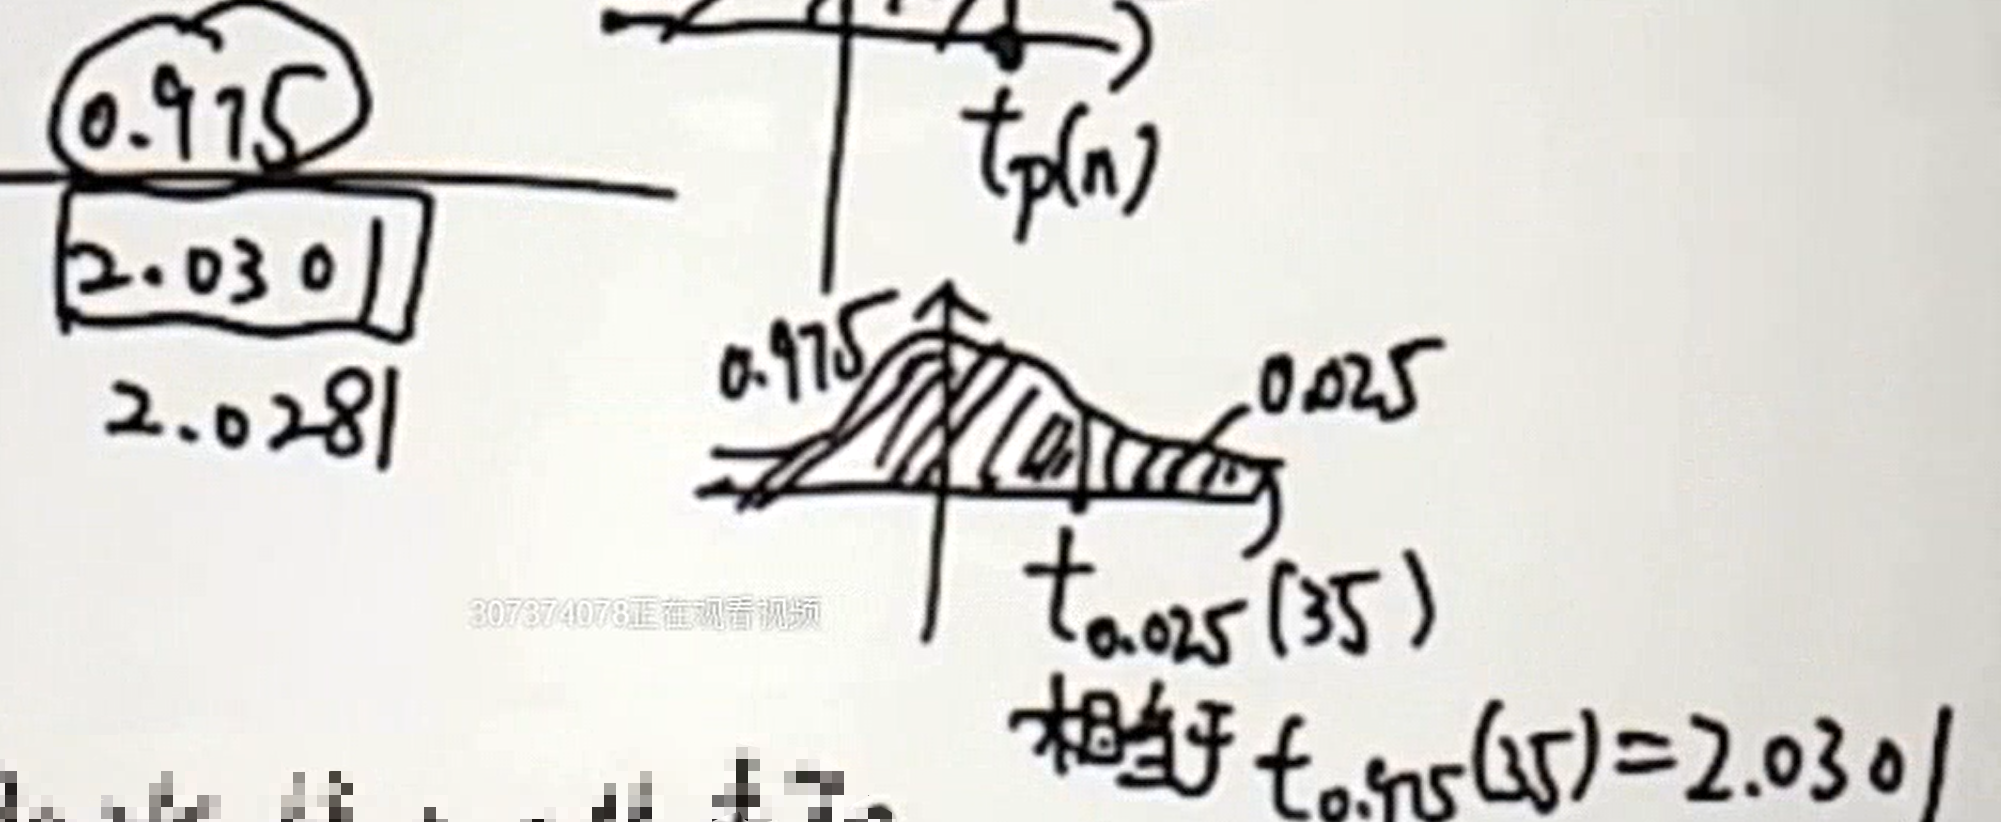 0.975
2.0301
2.0281
tp(n)
0.975
0.025
t0.025(35)
相当于 t0.975(35)=2.0301
307374078正在观看视频